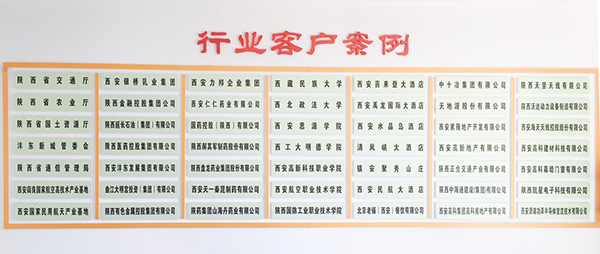 行业客户案例
陕西省交通厅
陕西省农业厅
陕西省国土资源厅
沣东新城管委会
陕西省通信管理局
西安阎良国家航空高技术产业基地
西安国家民用航天产业基地
西安银桥乳业集团
陕西金融控股集团公司
陕西延长石油(集团)有限公司
陕西医药控股集团公司
西安沣东发展集团有限公司
曲江大明宫投资(集团)有限公司
陕西有色金属控股集团有限公司
西安力邦企业集团
西安仁仁药业有限公司
国药控股(陕西)有限公司
陕西郝其军制药股份有限公司
陕西盘龙药业集团股份有限公司
西安天一秦昆制药有限公司
陕药集团山海丹药业有限公司
西藏民族大学
西北政法大学
西安思源学院
西工大明德学院
西安高新科技职业学院
西安航空职业技术学院
陕西国防工业职业技术学院
西安喜来登大酒店
西安禹龙国际大酒店
西安水晶岛酒店
清风峡大酒店
镇安聚秀山庄
西安民航大酒店
北京老铺(西安)餐饮有限公司
中十冶集团有限公司
天地源股份有限公司
西安紫薇地产开发有限公司
西安高新地产有限公司
陕西正合交通产业公司
陕西中海通建设(集团)有限公司
西安高科集团高科房地产有限公司
陕西天翌天线有限公司
陕西沃达动力设备制造有限公司
西安海天天线控股股份有限公司
西安高科建材科技有限公司
西安高科幕墙门窗有限公司
陕西凯星电子科技有限公司